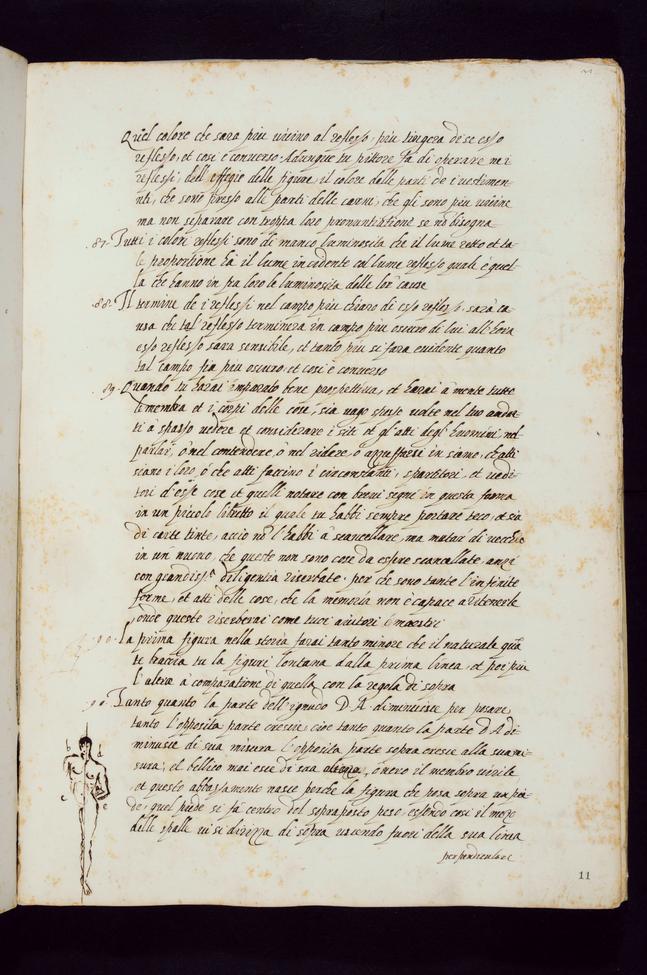 Quel colore che sara piu vicino al reflesso, piu tingera di se esso
reflesso, et cosi è converso. Adunque tu pittore fa di operare ne i
reflessi dell' effigie delle figure, il colore delle parti de i vestimen-
ti, che sono presso alli parti delle carni, che gli sono piu vicine
ma non separare con troppa loro pronuntiatione se nō bisogna
.87. Tutti i colori reflessi sono di manco luminosità che il lume retto et ta-
le proportione hà il lume incidente col lume reflesso quale è quel-
la che hanno in fra loro le luminosità delle lor cause
.88. Il termine de i reflessi nel campo piu chiaro di esso reflesso, sarà ca-
usa che tal reflesso terminera in campo piu oscuro di lui all' hora
esso reflesso sara sensibile, et tanto piu si fara evidente quanto
tal campo fia piu oscuro, et cosi è converso
89. Quando tu harai imparato bene prospettiva, et harai à mente tutte
le membra et i corpi delle cose, sia vago spesse volte nel tuo andar-
ti à spasso vedere et considerare i siti et gl'atti degl' huomini, nel
parlar, ò nel contendere, ò nel ridere, ò azzuffarsi in siamo, ch' atti
siano i loro, ò che atti faccino i circonstanti, spartitori, et vedi-
tori d'esse cose et quelli notare con brevi segni in questa forma
in un piccolo libretto il quale tu habbi sempre portare teco, et sia
di carte tinte, accio nō l'habbi à scancellare, ma mutar di vecchio
in un nuovo, che queste non sono cose da essere scancellate, anzi
con grandiss.ᵃ diligentia riserbate. per che sono tante l'infinite
forme, et atti delle cose, che la memoria non è capace a ritenerle
onde queste riserberai come tuoi aiutori è maestri
90. La prima figura nella storia farai tanto minore che il naturale quā-
te braccia tu la figuri lontana dalla prima linea, et poi piu
l'altre à comparatione di quella, con la regola di sopra
Tanto quanto la parte dell' ignudo D A. diminuisce per posare,
tanto l'opposita parte cresce, cioe tanto quanto la parte D A di-
minuisce di sua misura l'opposita parte sopra cresce alla sua mi-
sura, et bellico mai esce di sua altezza, overo il membro virile,
et questo abbassamento nasce perche la figura che posa sopra un pie-
de, quel piede si fa centro del sopraposto peso, essendo cosi il mezo
delle spalle vi si dirizza di sopra uscendo fuori della sua linea
perpendiculare
b
e
c
11